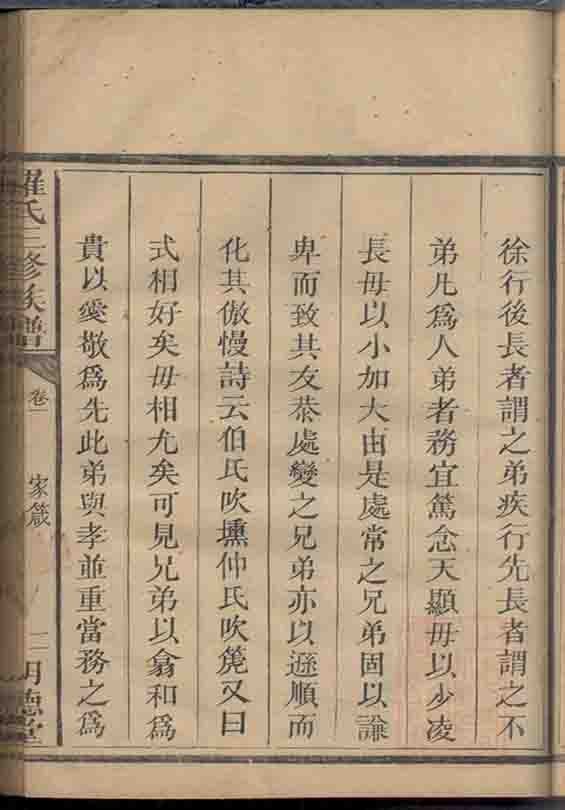 徐行後長者謂之弟疾行先長者謂之不
弟凡爲人弟者務宜篤念天顯毋以少凌
長毋以小加大由是處常之兄弟固以謙
卑而致其友恭處變之兄弟亦以遜順而
化其傲慢詩云伯氏吹壎仲氏吹篪又曰
式相好矣毋相尤矣可見兄弟以翕和爲
貴以愛敬爲先此弟與孝並重當務之爲
羅氏三修族譜
卷一
家箴
明德堂